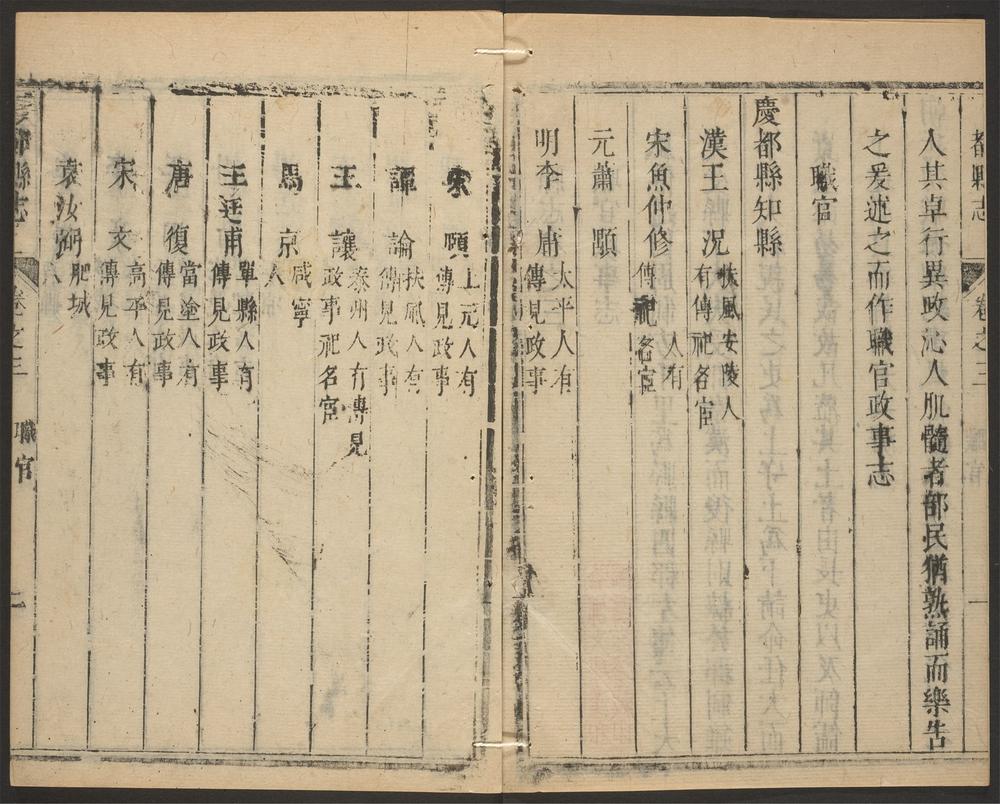 都縣志 卷之三 一
人其卓行異政沁人肌髓者部民猶熟誦而樂告
之爰述之而作職官政事志
職官
慶都縣知縣
漢王況 扶風安陵人
有傳祀名宦
宋魚仲修 人有
傳祀名宦
元蕭願
明李庸 太平人有
傳見政事
宋顒 上元人有
傳見政事
譚論 扶風人有
傳見政事
王讓 泰州人有傳見
政事祀名宦
馬京 咸寧
人
王廷甫 單縣人有
傳見政事
唐復 當塗人有
傳見政事
宋文 高平人有
傳見政事
袁汝弼 肥城
人
都縣志 卷之三 職官 二